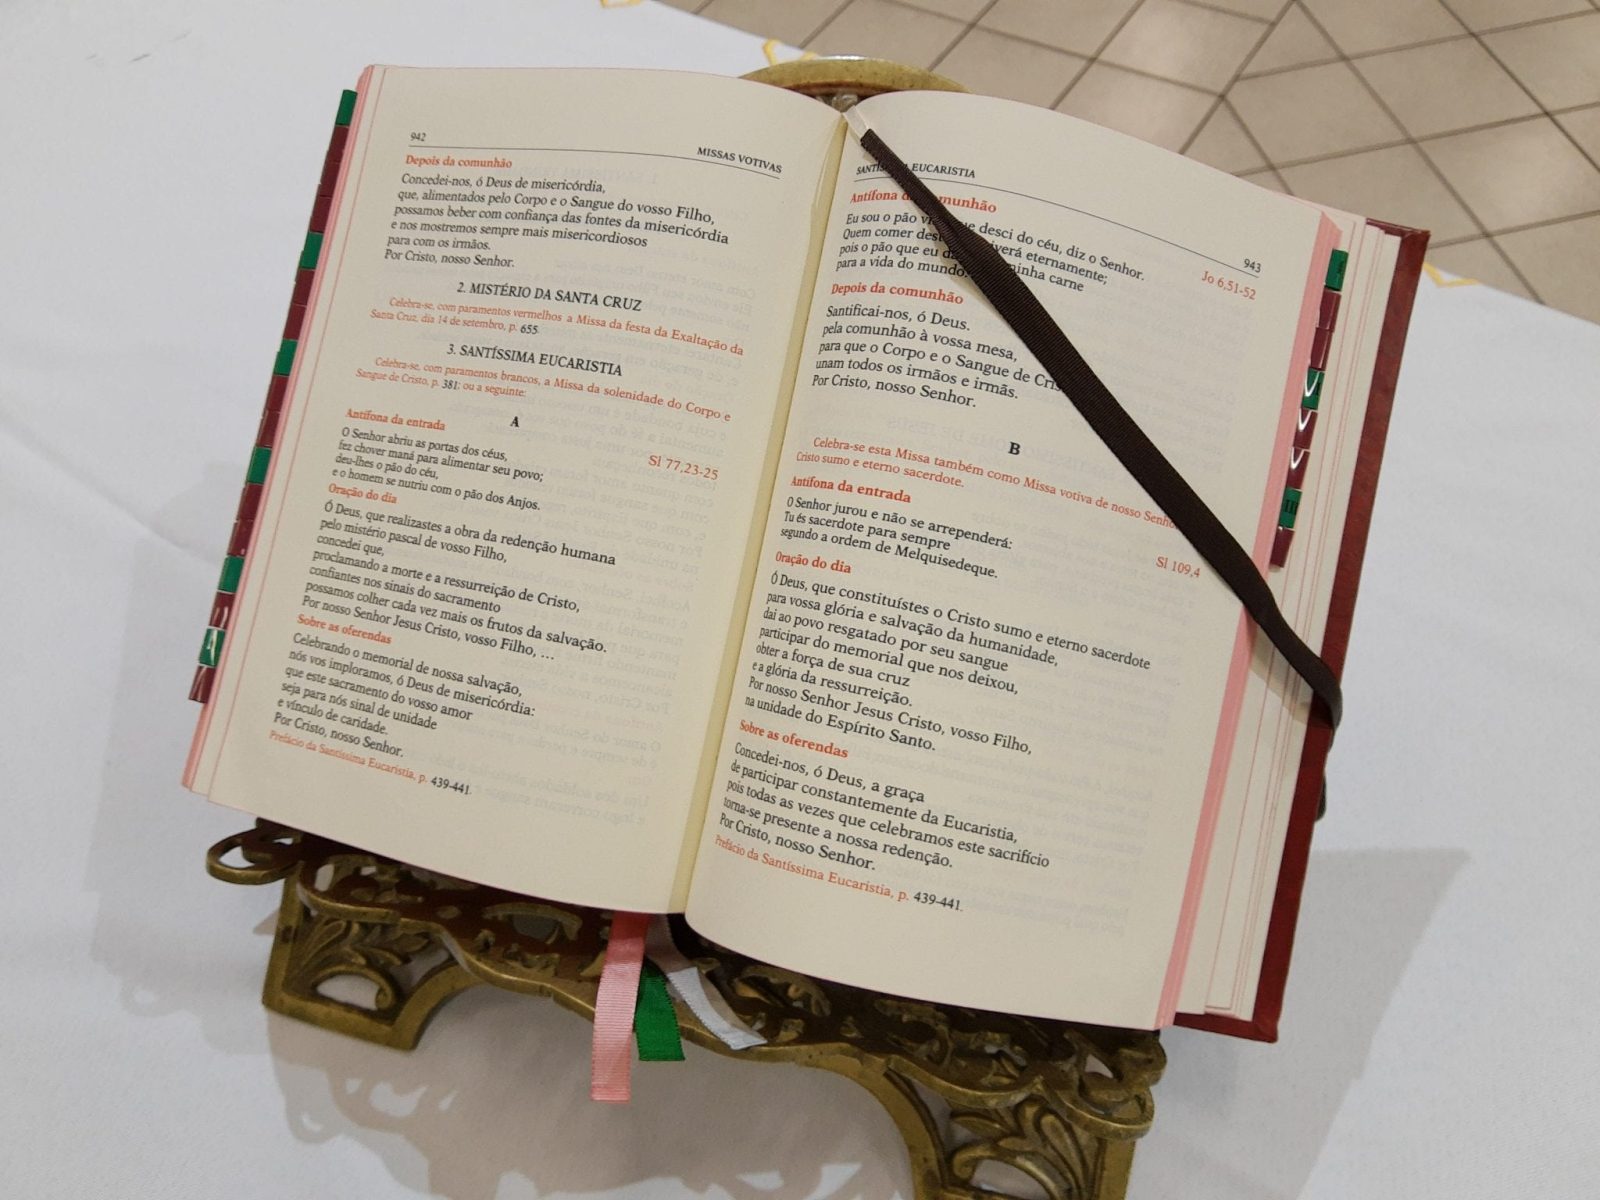 942
MISSAS VOTIVAS
Depois da comunhão
Concedei-nos, ó Deus de misericórdia,
que, alimentados pelo Corpo e o Sangue do vosso Filho,
possamos beber com confiança das fontes da misericórdia
e nos mostremos sempre mais misericordiosos
para com os irmãos.
Por Cristo, nosso Senhor.
2. MISTÉRIO DA SANTA CRUZ
Celebra-se, com paramentos vermelhos a Missa da festa da Exaltação da
Santa Cruz, dia 14 de setembro, p. 655.
3. SANTÍSSIMA EUCARISTIA
Celebra-se, com paramentos brancos, a Missa da solenidade do Corpo e
Sangue de Cristo, p. 381; ou a seguinte:
A
Antífona da entrada
Sl 77,23-25
O Senhor abriu as portas dos céus,
fez chover maná para alimentar seu povo;
deu-lhes o pão do céu,
e o homem se nutriu com o pão dos Anjos.
Oração do dia
Ó Deus, que realizastes a obra da redenção humana
pelo mistério pascal de vosso Filho,
concedei que,
proclamando a morte e a ressurreição de Cristo,
confiantes nos sinais do sacramento
possamos colher cada vez mais os frutos da salvação.
Por nosso Senhor Jesus Cristo, vosso Filho, ...
Sobre as oferendas
Celebrando o memorial de nossa salvação,
nós vos imploramos, ó Deus de misericórdia:
que este sacramento do vosso amor
seja para nós sinal de unidade
e vínculo de caridade.
Por Cristo, nosso Senhor.
Prefácio da Santíssima Eucaristia, p. 439-441.
EUCARISTIA
943
Antífona da comunhão
Jo 6,51-52
Eu sou o pão que desci do céu, diz o Senhor.
Quem comer viverá eternamente;
pois o pão que eu minha carne
para a vida do mundo.
Depois da comunhão
Santificai-nos, ó Deus.
pela comunhão à vossa mesa,
para que o Corpo e o Sangue de
unam todos os irmãos e irmãs.
Por Cristo, nosso Senhor.
B
Celebra-se esta Missa também como Missa votiva de nosso
Cristo sumo e eterno sacerdote.
Antífona da entrada
Sl 109,4
O Senhor jurou e não se arrependerá:
Tu és sacerdote para sempre
segundo a ordem de Melquisedeque.
Oração do dia
Ó Deus, que constituístes o Cristo sumo e eterno sacerdote
para vossa glória e salvação da humanidade,
dai ao povo resgatado por seu sangue
participar do memorial que nos deixou,
obter a força de sua cruz
e a glória da ressurreição.
Por nosso Senhor Jesus Cristo, vosso Filho,
na unidade do Espírito Santo.
Sobre as oferendas
Concedei-nos, ó Deus, a graça
de participar constantemente da Eucaristia,
pois todas as vezes que celebramos este sacrifício
torna-se presente a nossa redenção.
Por Cristo, nosso Senhor.
Prefácio da Santíssima Eucaristia, p. 439-441.